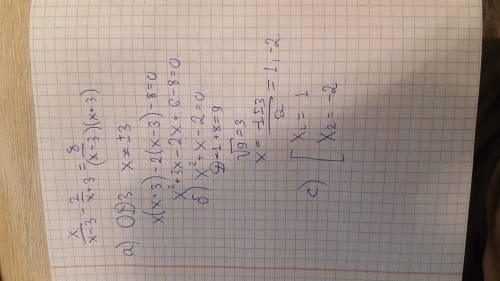 x/(x-3) - 2/(x+3) = 8/((x-3)(x+3))
a) ОДЗ x ≠ ±3
x(x+3)-2(x-3)-8=0
x²+3x-2x+6-8=0
б) x²+x-2=0
D=1+8=9
√9=3
x = (-1±3)/2 = 1, -2
c) [ x₁ = 1
x₂ = -2